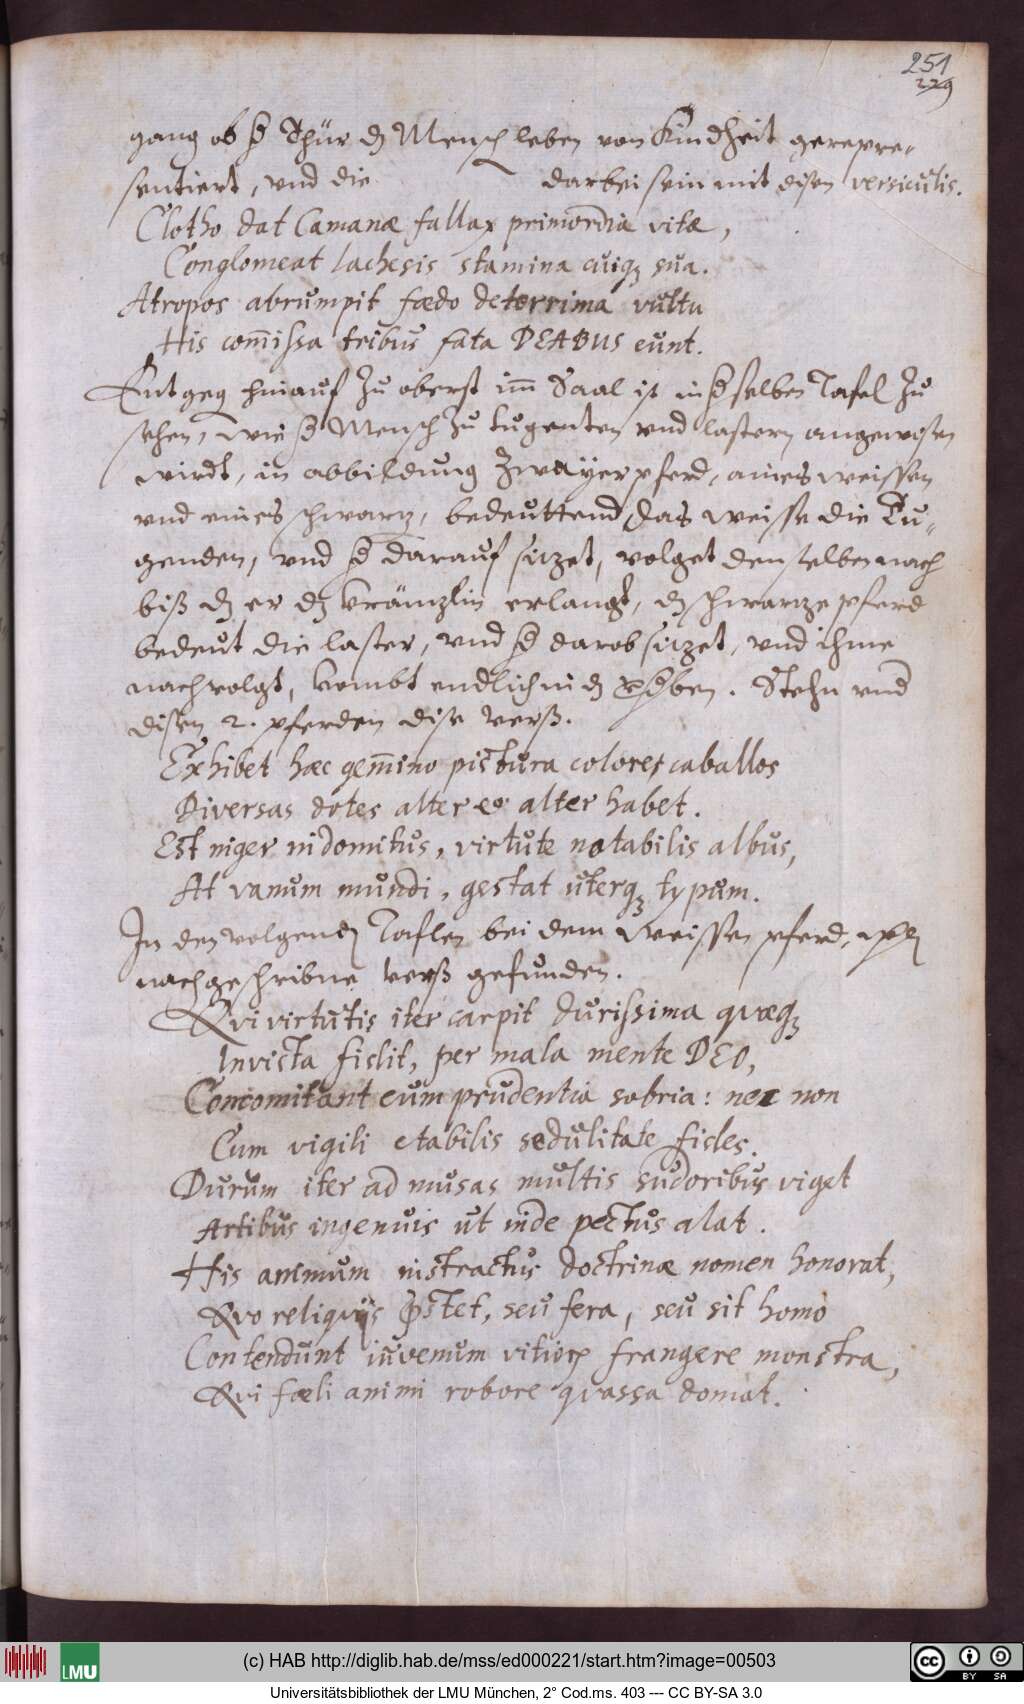 251
229
gang ob d Thür dz Mensch leben von Kindheit gerepre-
sentiert, und die darbei sein mit disen versiculis.
Clotho dat Camanæ fallax primordia vitæ,
Conglomeat lachesis stamina cuiqz sua.
Atropos abrumpit fædo deterrima vultu
His com̄issa tribus fata DEABUS eunt.
hinauf zu oberst im̄ Saal ist in dselben Tafel zu
sehen, wie d Mensch zu tugenten und lastern angewisen
wirdt, in abbildung zwayer pferd, aines weissen
und eines schwartz, bedeuttend das weisse die Tu-
genden, und d darauf sitzet, volget denselben nach
biß dz er dz Kräntzlin erlangt, dz schwartze pferd
bedeut die laster, und d darob sitzet, und ihme
nachvolgt, kombt endlich in dz Stehn und
disen 2. pferden dise verß.
Exhibet hæc gem̄ino pictura colores caballos
Diversas dotes alter eo alter habet.
Est niger indomitus, virtute notabilis albus,
At vanum mundi, gestat uterqz typum.
In den volgenden Taflen bei dem weissen pferd,
nachgeschribne verß gefunden.
Qvi virtutis iter carpit durissima quæqz
Invicta fislit, per mala mente DEO,
Concomitant eum prudentia sobria: nec non
Cum vigili stabilis sedulitate fides.
Durum iter ad musas multis sudoribus viget
Artibus ingenuis ut inde pectus alat.
His animum instructus doctrinæ nomen honorat,
Qvo reliquijs p̄stet, seu fera, seu sit homo
Contendunt iuvenum vitiorum frangere monstra,
Qvi fæli animi robore quassa domat.
(c) HAB http://diglib.hab.de/mss/ed000221/start.htm?image=00503
LMU
cc BY SA
Universitätsbibliothek der LMU München, 2° Cod.ms. 403 --- CC BY-SA 3.0